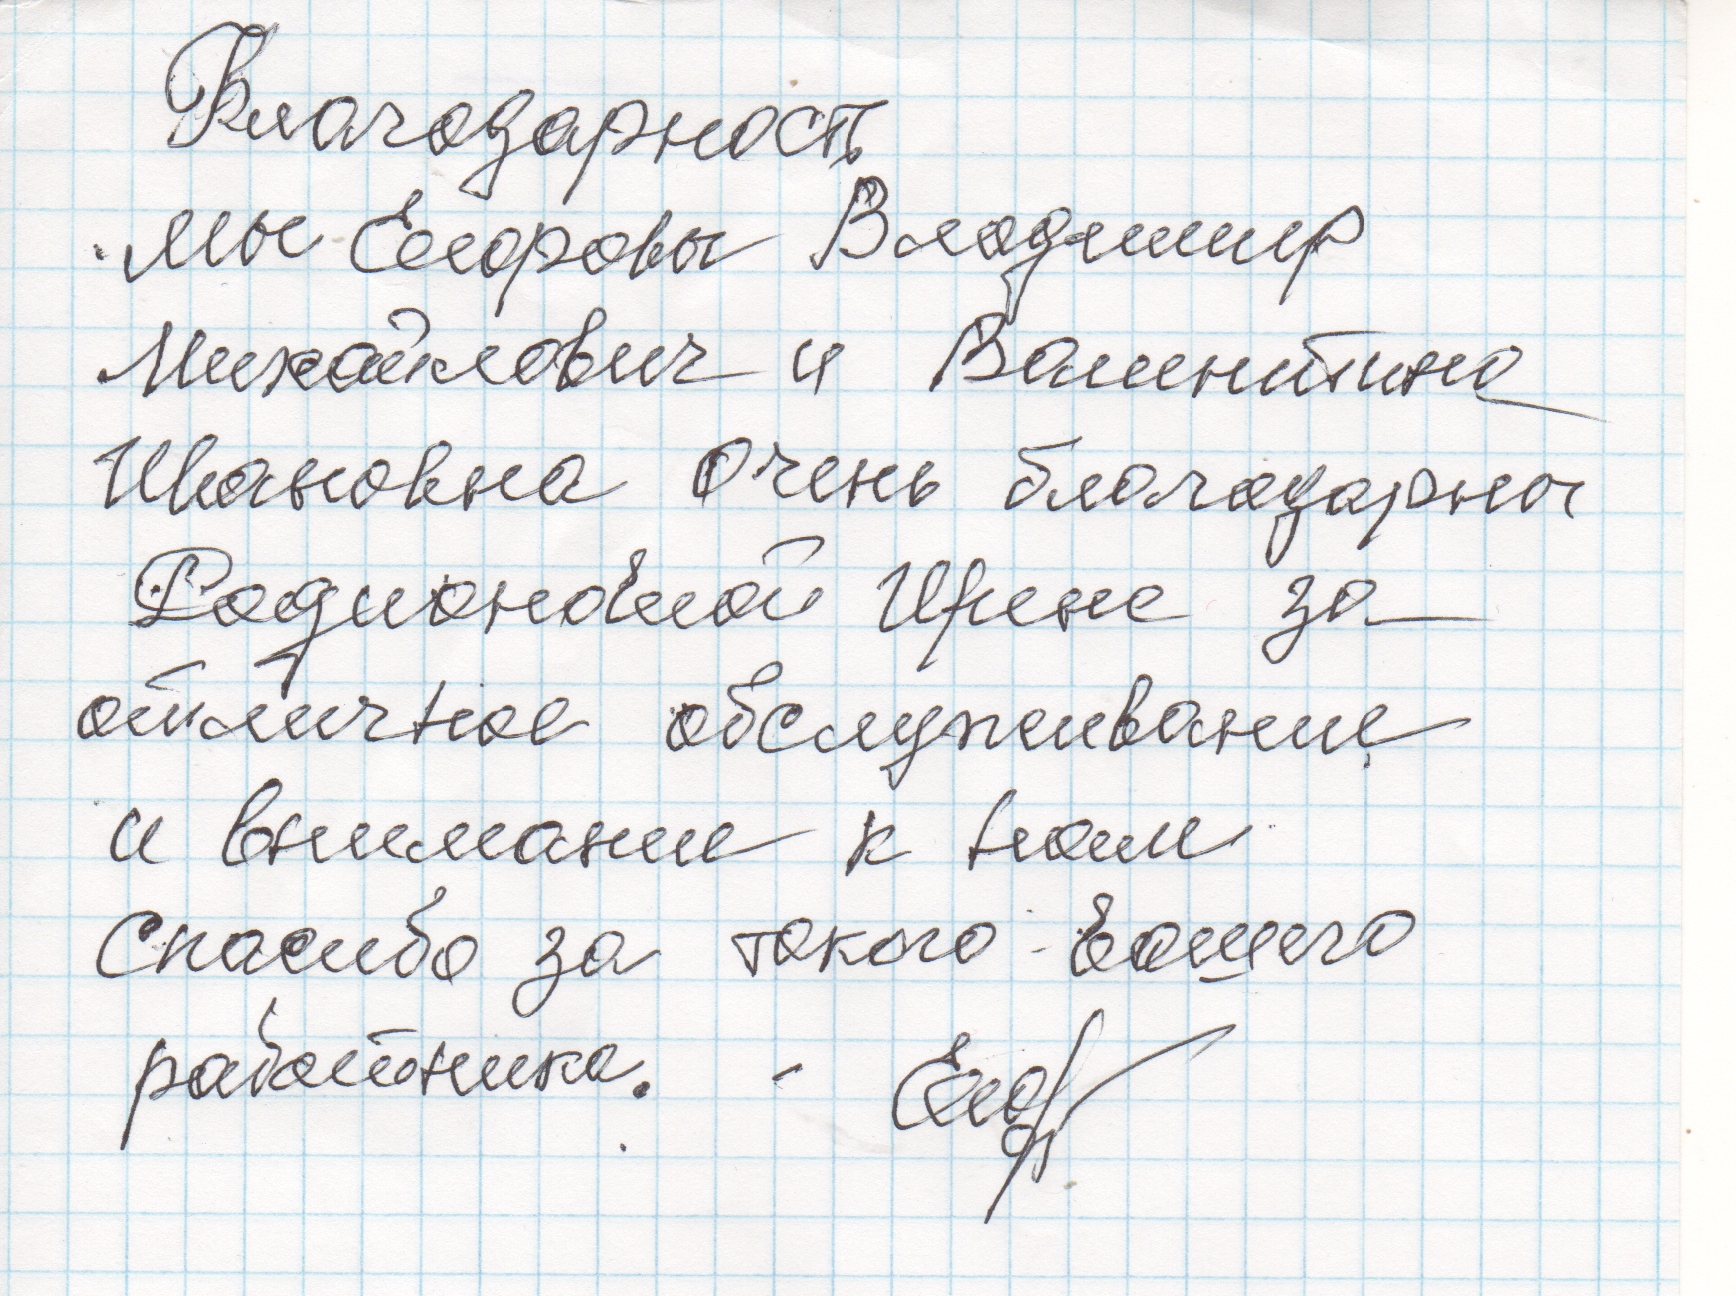 Благодарность
Мы Егоровы Владимир
Михайлович и Валинтина
Ивановна очень благодарны
Родионовной Ирине за
отличное обслуживание
и внимание к нам
Спасибо за такого вашего
работника. -